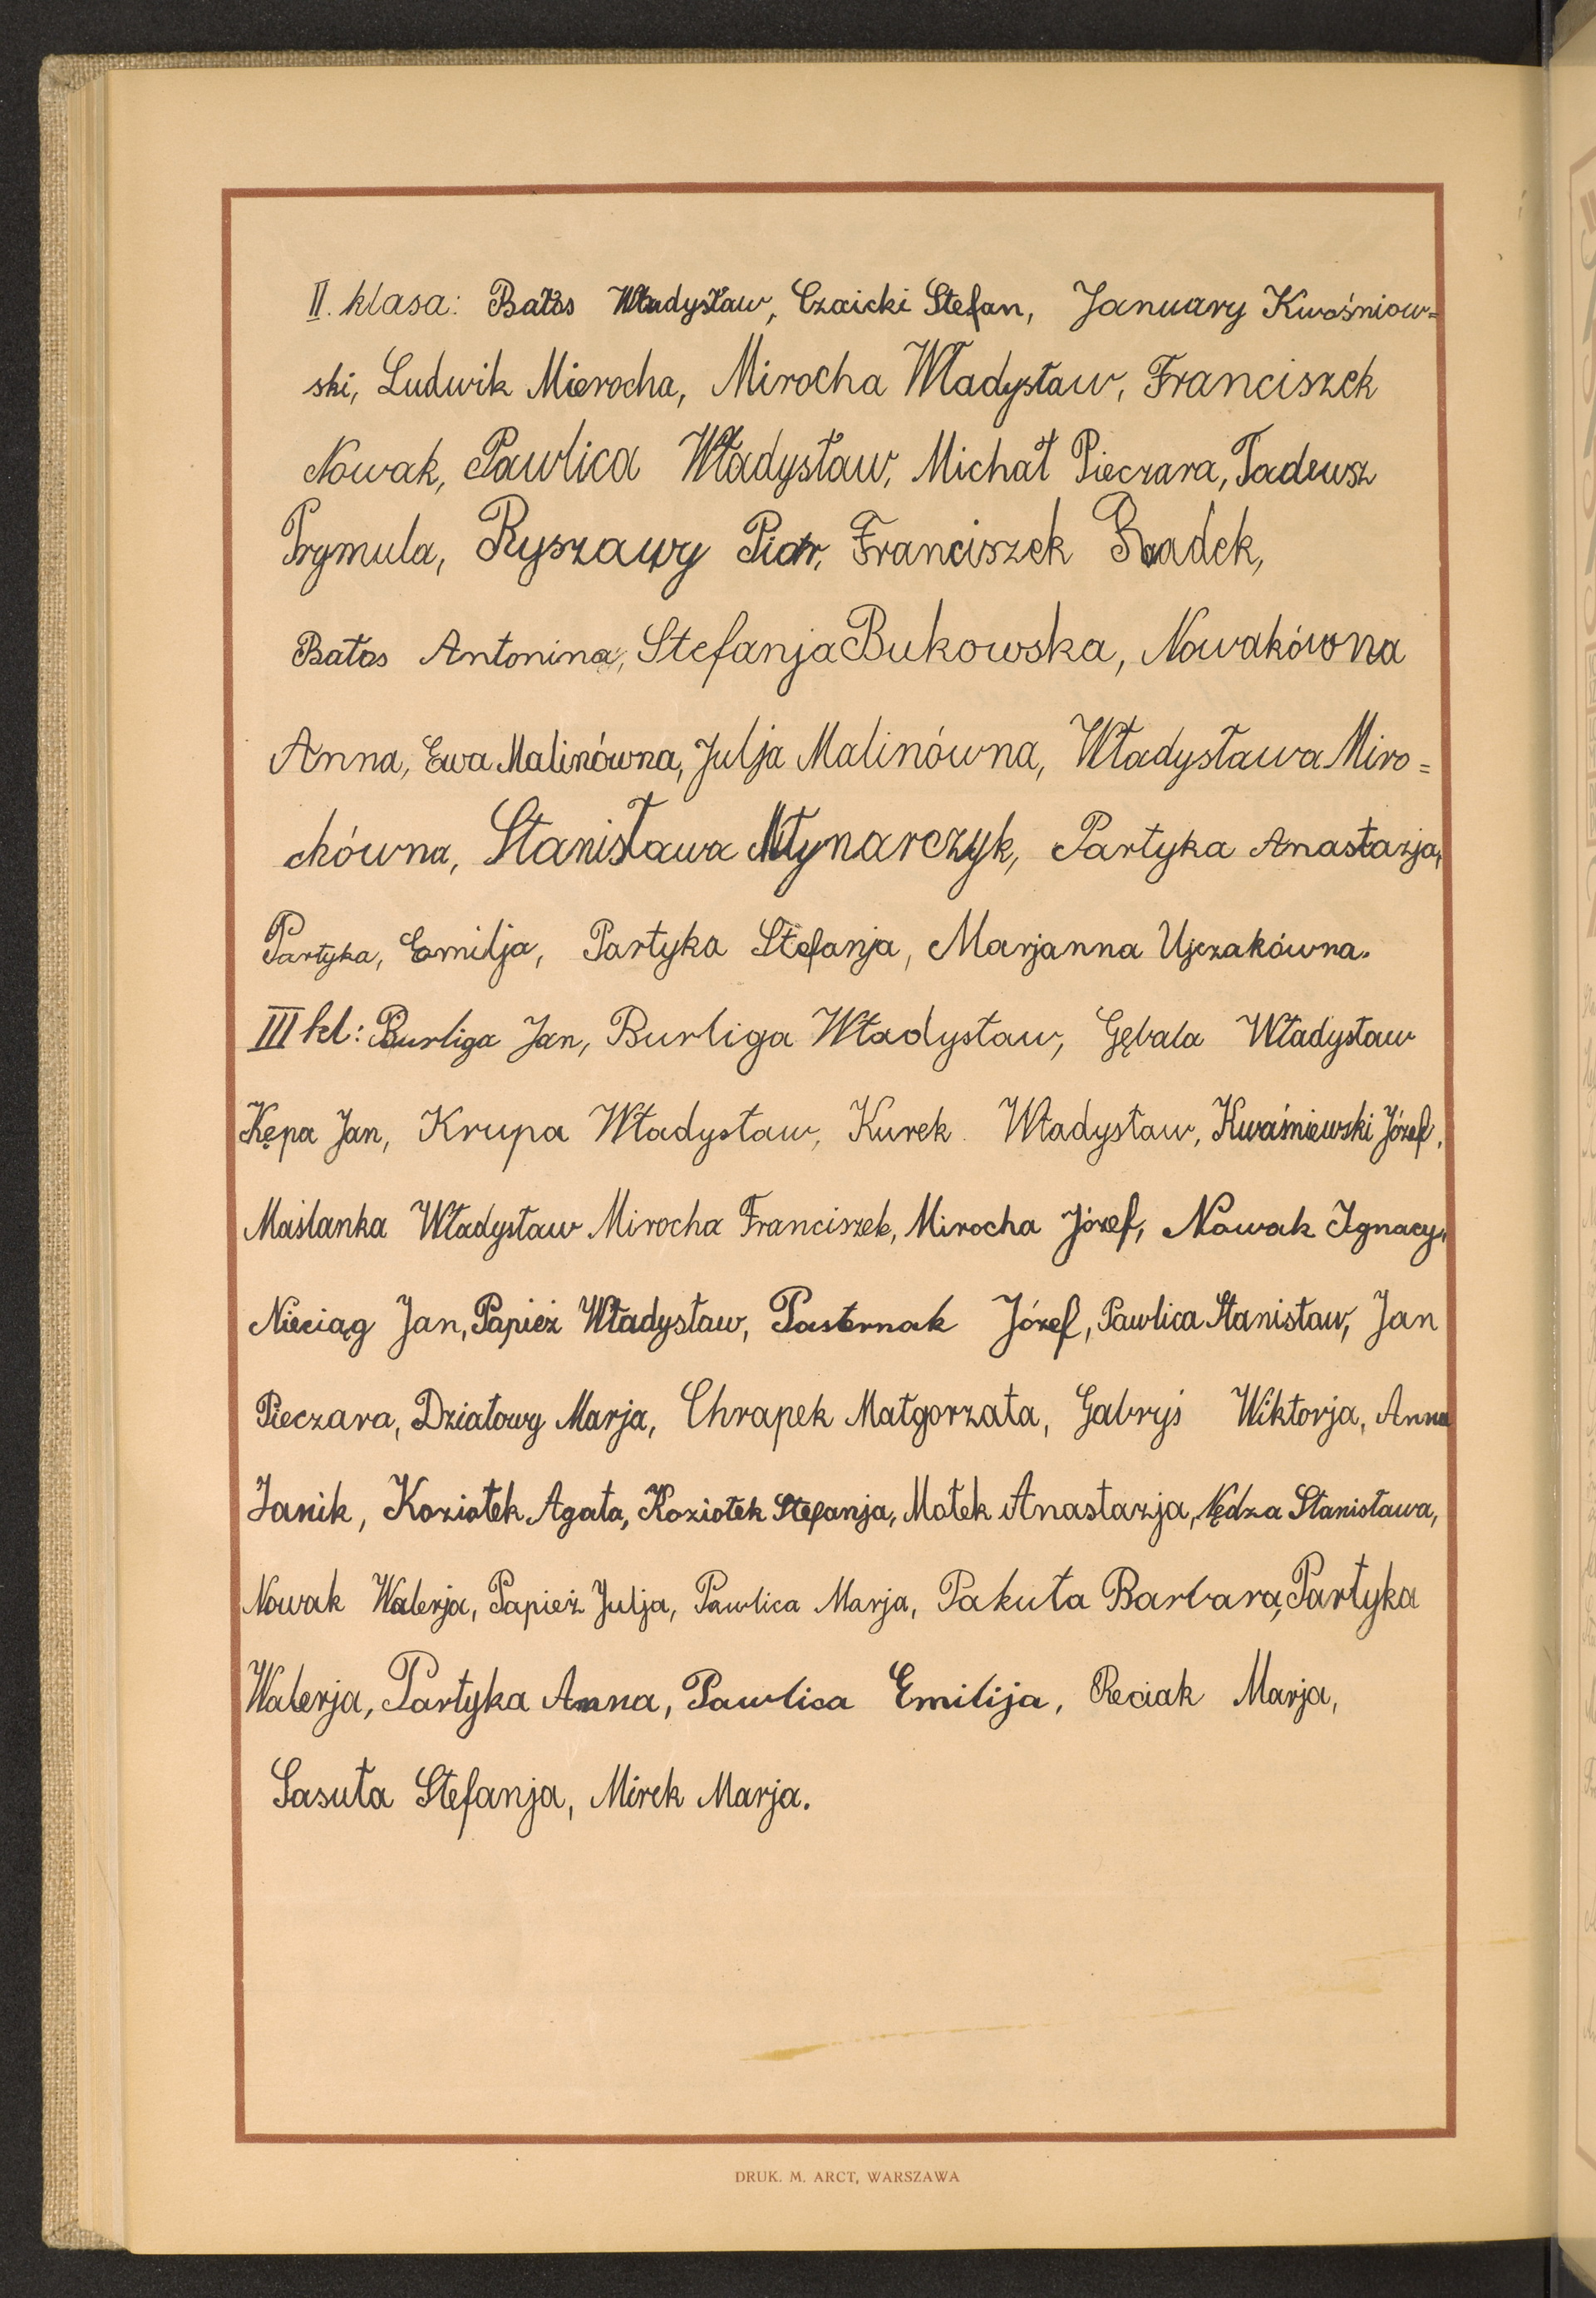 II. klasa: Bałos Władysław, Czaicki Stefan, January Kwośniow=
ski, Ludwik Mierocha, Mirocha Władysław, Franciszek
Nowak, Pawlica Władysław, Michał Pieczara, Tadeusz
Prymula, Ryszawy Piotr, Franciszek Radek,
Bałos Antonina, Stefanja Bukowska, Nowakówna
Anna, Ewa Malinówna, Julja Malinówna, Władysława Miro=
chówna, Stanisława Młynarczyk, Partyka Anastazja,
Partyka, Emilja, Partyka Stefanja, Marjanna Ujczakówna.
III kl: Burliga Jan, Burliga Władysław, Gębala Władysław
Kępa Jan, Krupa Władysław, Kurek Władysław, Kwaśniewski Józef,
Maślanka Władysław Mirocha Franciszek, Mirocha Józef, Nowak Ignacy,
Nieciąg Jan, Papież Władysław, Pasternak Józef, Pawlica Stanisław, Jan
Pieczara, Działowy Marja, Chrapek Małgorzata, Gabryś Wiktorja, Anna
Janik, Koziołek Agata, Koziołek Stefanja, Motek Anastazja, Nędza Stanisława,
Nowak Walerja, Papież Julja, Pawlica Marja, Pakuła Barbara, Partyka
Walerja, Partyka Anna, Pawlica Emilija, Reciak Marja,
Sasuła Stefanja, Mirek Marja.
DRUK. M. ARCT, WARSZAWA